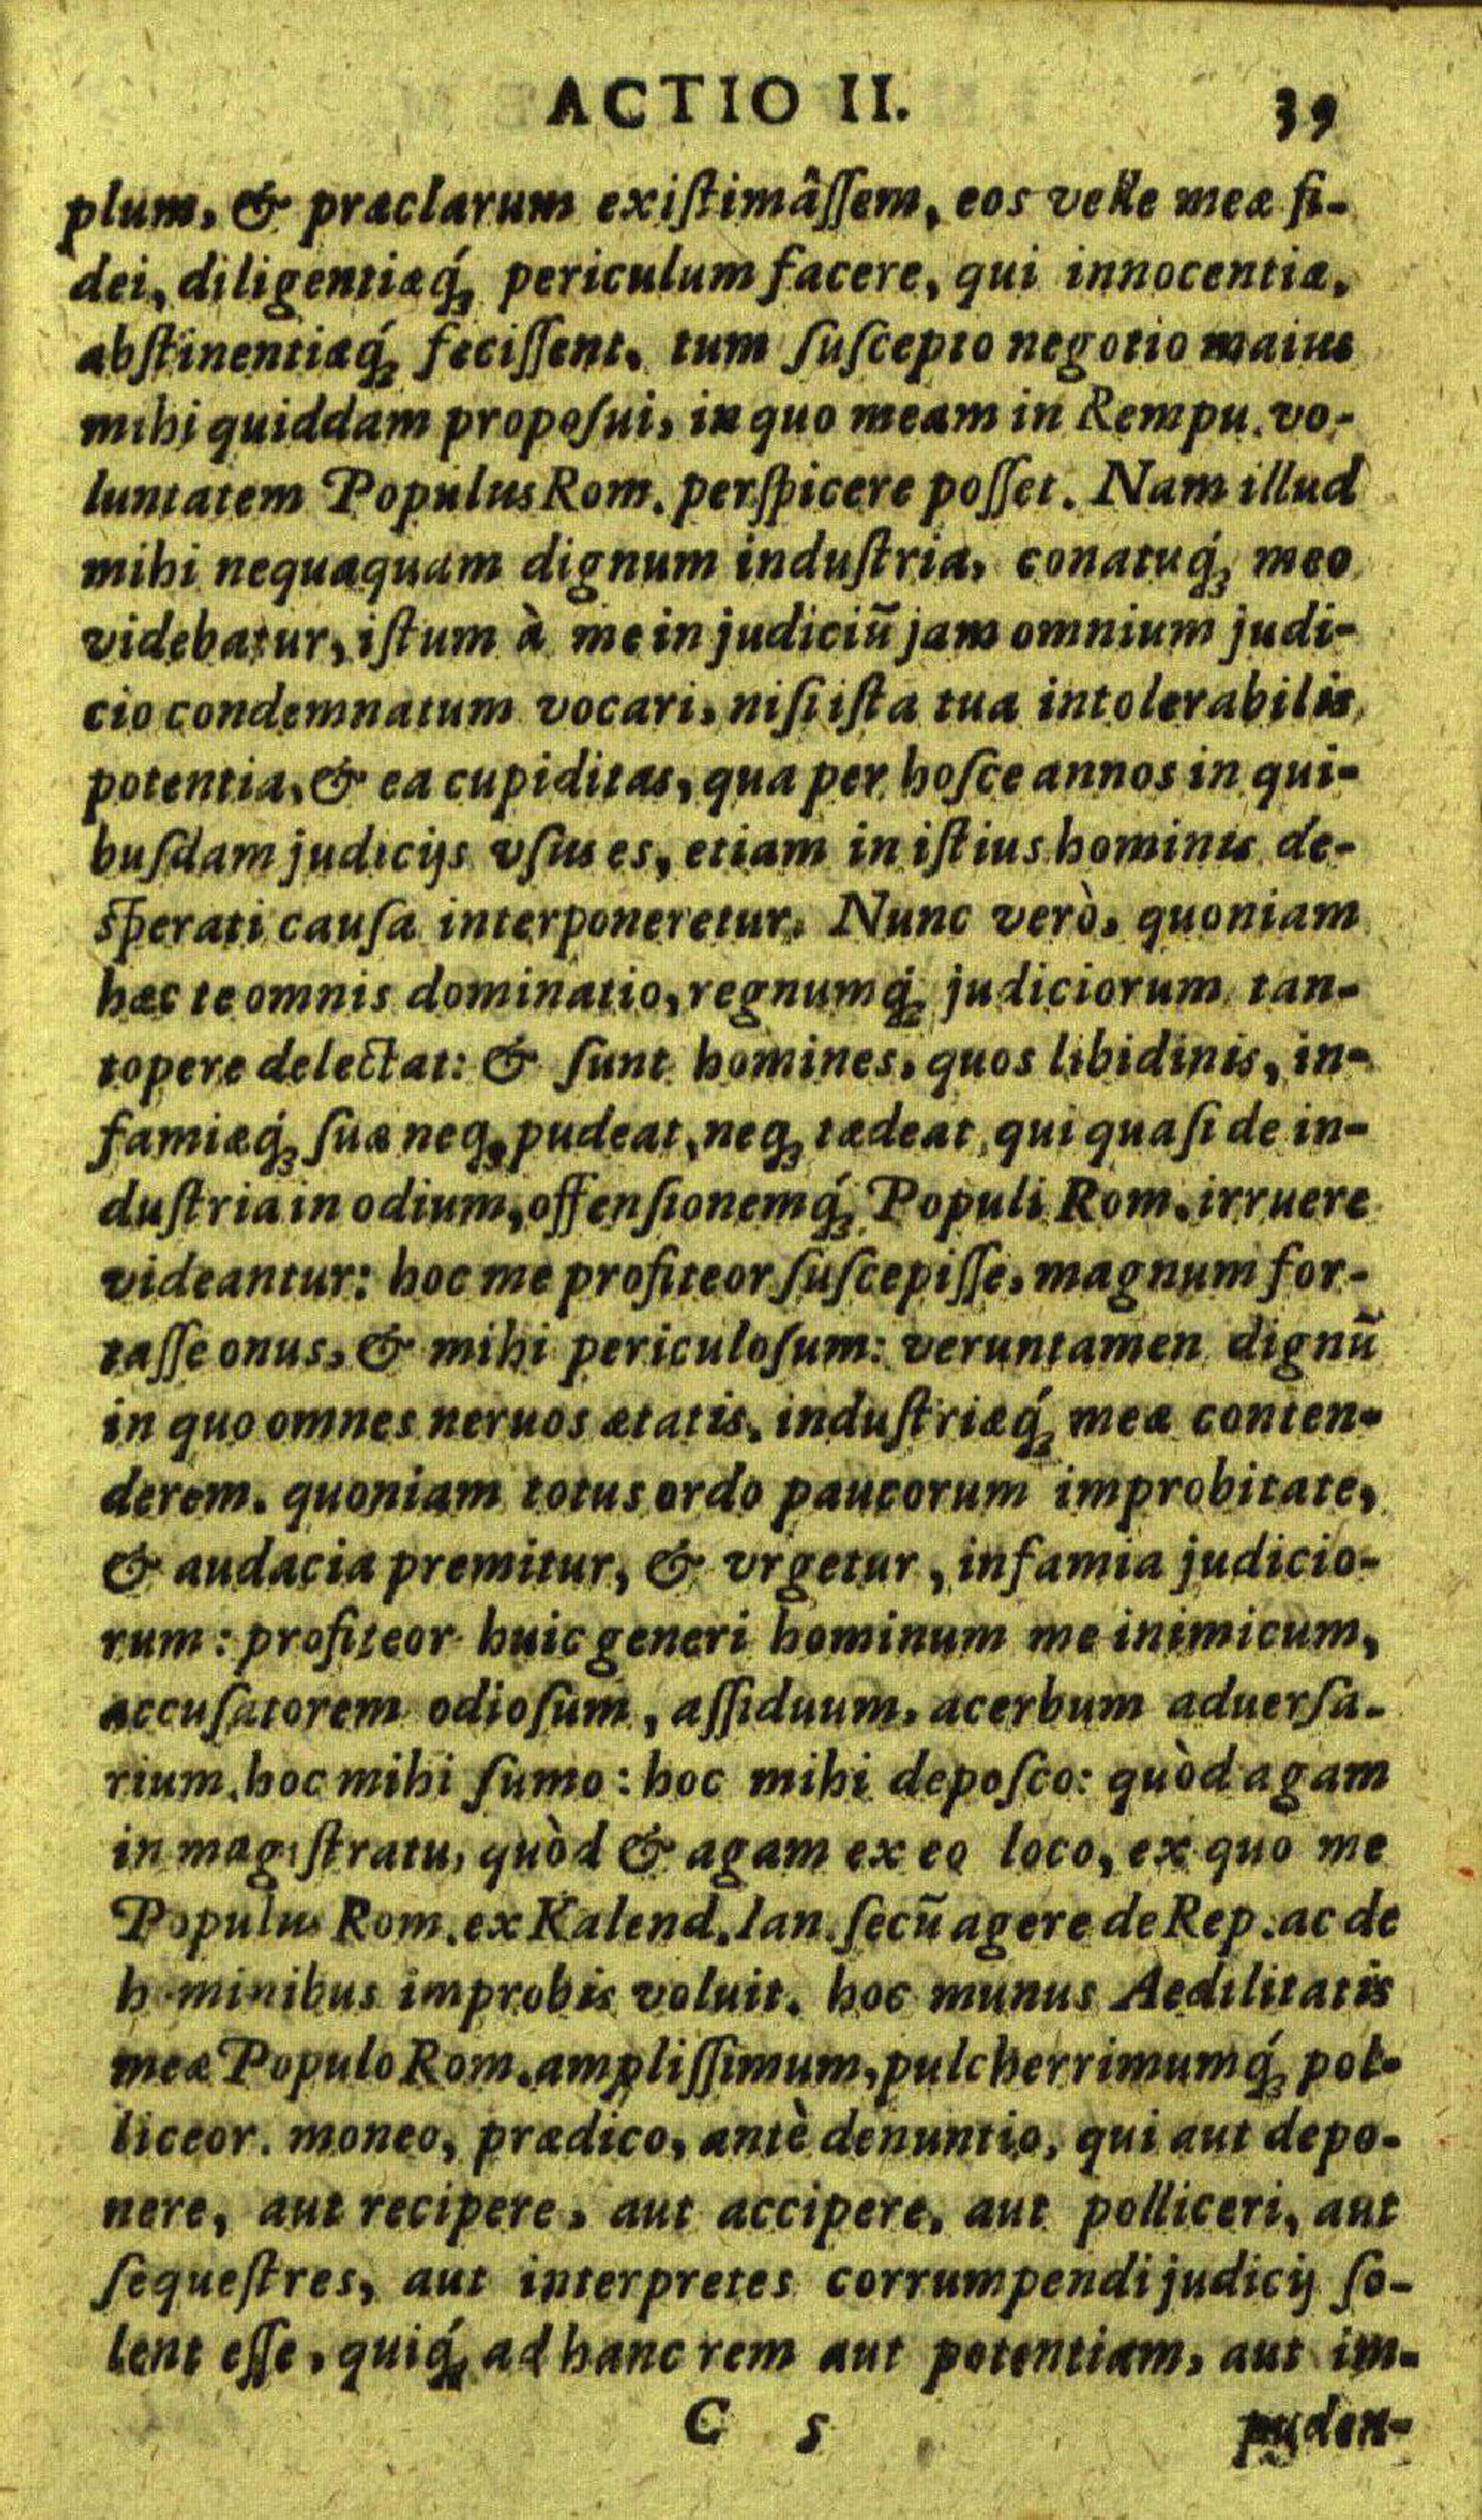 ACTIO II. 39
plum, & præclarum exiſtimâſſem, eos velle meæ fi-
dei, diligentiæq́; periculum facere, qui innocentiæ,
abſtinentiæq́; feciſſent. tum ſuſcepto negotio maius
mihi quiddam propoſui, in quo meam in Rempu. vo-
luntatem Populus Rom. perſpicere poſſet. Nam illud
mihi nequaquam dignum induſtria, conatuq́; meo
videbatur, iſtum à me in judiciũ jam omnium judi-
cio condemnatum vocari, niſi iſta tua intolerabilis
potentia, & ea cupiditas, qua per hoſce annos in qui-
buſdam judicijs vſus es, etiam in iſtius hominis de-
ſperati cauſa interponeretur. Nunc verò, quoniam
hæc te omnis dominatio, regnumq́; judiciorum tan-
topere delectat: & ſunt homines, quos libidinis, in-
famiæq́; ſuæ neq; pudeat, neq; tædeat, qui quaſi de in-
duſtria in odium, offenſionemq́; Populi Rom. irruere
videantur: hoc me profiteor ſuſcepiſſe, magnum for-
taſſe onus, & mihi periculoſum: veruntamen dignũ
in quo omnes neruos ætatis, induſtriæq́; meæ conten-
derem. quoniam totus ordo paucorum improbitate,
& audacia premitur, & vrgetur, infamia judicio-
rum: profiteor huic generi hominum me inimicum,
accuſatorem odioſum, aſſiduum, acerbum aduerſa-
rium. hoc mihi ſumo: hoc mihi depoſco: quòd agam
in magiſtratu, quòd & agam ex eo loco, ex quo me
Populus Rom. ex Kalend. Ian. ſecũ agere de Rep. ac de
hominibus improbis voluit. hoc munus Aedilitatis
meæ Populo Rom. ampliſſimum, pulcherrimumq́; pol-
liceor. moneo, prædico, antè denuntio, qui aut depo-
nere, aut recipere, aut accipere, aut polliceri, aut
ſequeſtres, aut interpretes corrumpendi judicij ſo-
lent eſſe, quiq́; ad hanc rem aut potentiam, aut im-
C 5 puden-